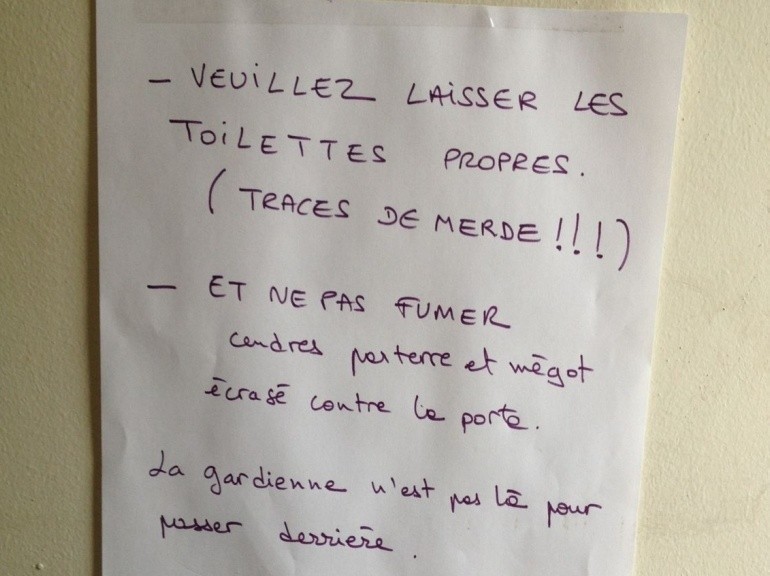 - VEUILLEZ LAISSER LES
TOILETTES PROPRES.
( TRACES DE MERDE !!!)
- ET NE PAS FUMER
cendres par terre et mégot
écrasé contre la porte.
La gardienne n'est pas là pour
passer derrière.